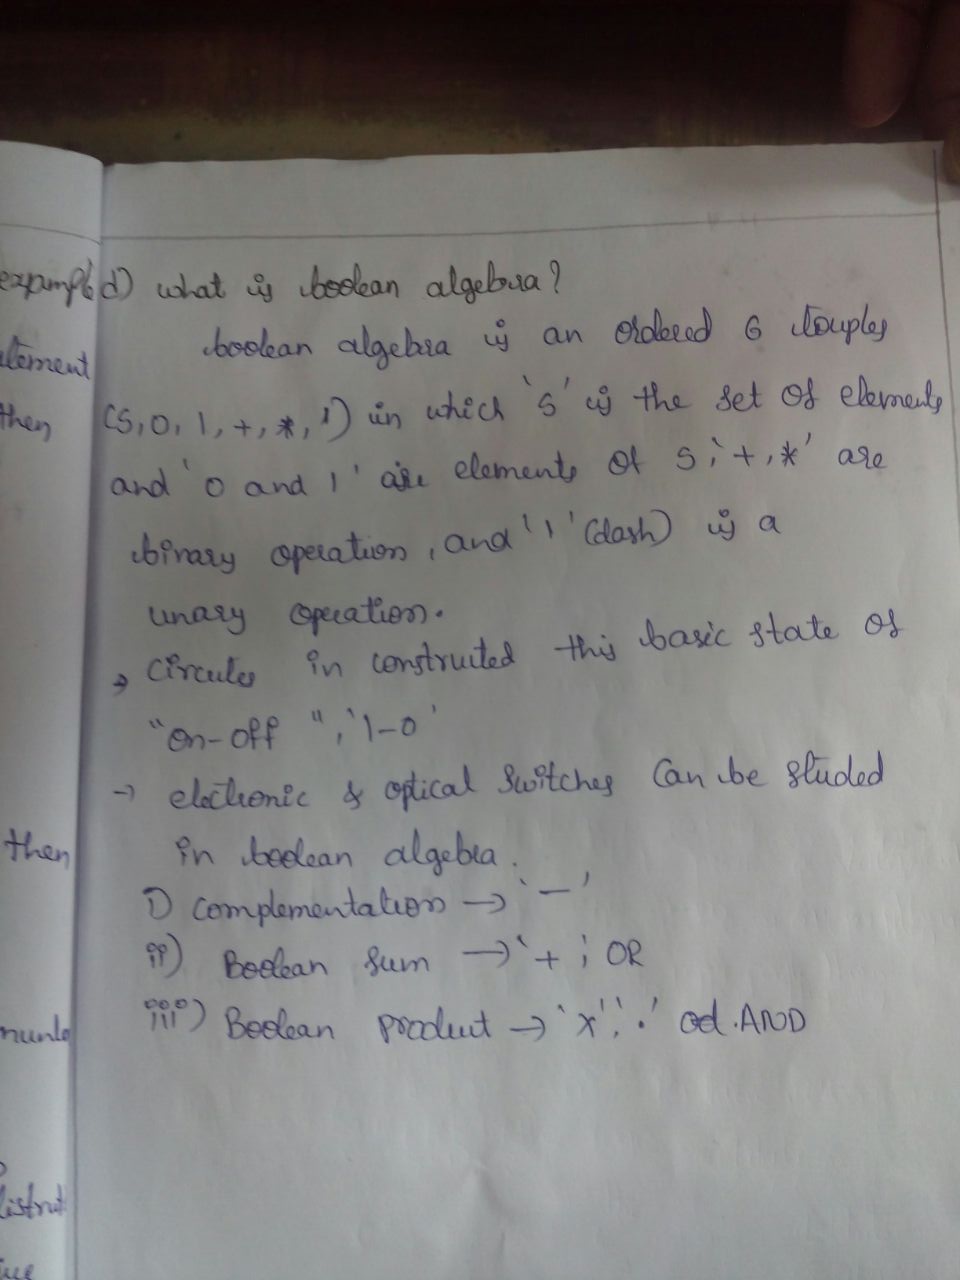 d) what is boolean algebra?
boolean algebra is an ordered 6 touples
(S, 0, 1, +, *, ') in which 's' is the set of elements
and '0 and 1' are elements of S; '+, *' are
binary operation, and ''' (dash) is a
unary operation.
→ circutes in construited this basic state of
"on-off", '1-0'
→ electronic & optical switches can be studed
in boolean algebra.
i) complementation → '—'
ii) Boolean sum → '+; OR
iii) Boolean product → 'x', '.' od. AND
exampl
element
then
then